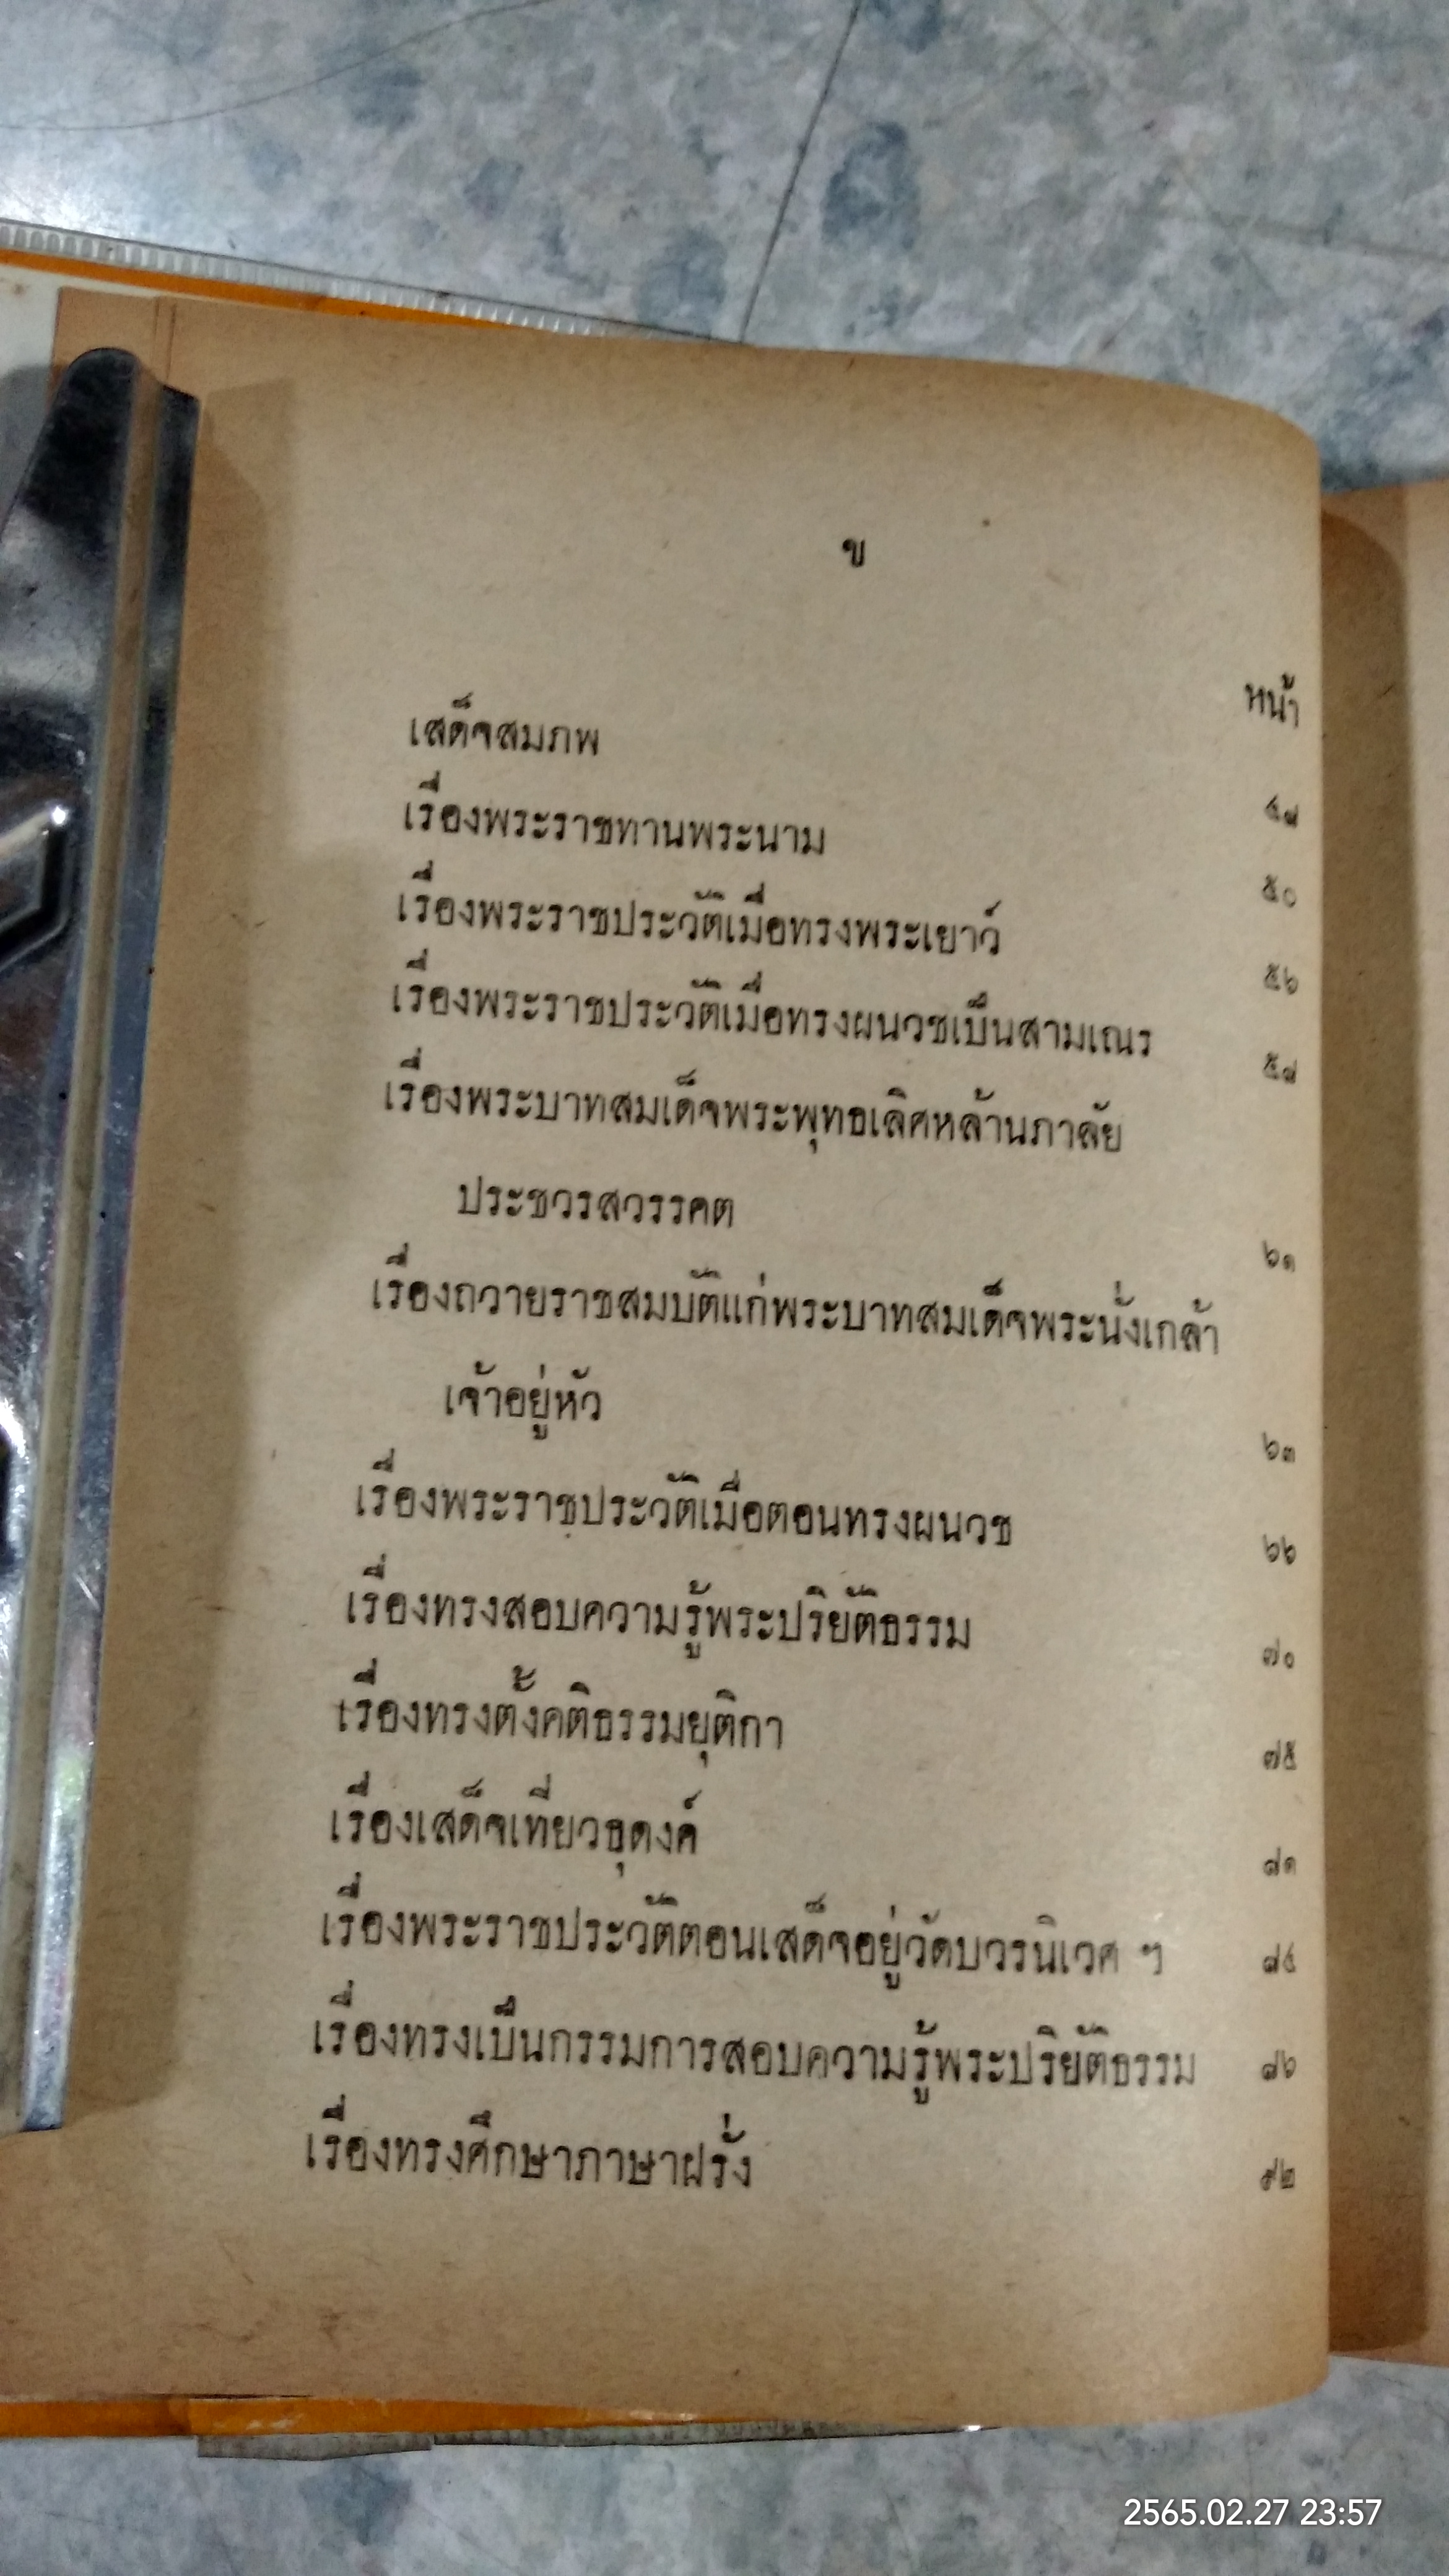 ข
หน้า
เสด็จสมภพ ๔๘
เรื่องพระราชทานพระนาม ๕๐
เรื่องพระราชประวัติเมื่อทรงพระเยาว์ ๕๖
เรื่องพระราชประวัติเมื่อทรงผนวชเป็นสามเณร ๕๘
เรื่องพระบาทสมเด็จพระพุทธเลิศหล้านภาลัย
ประชวรสวรรคต ๖๑
เรื่องถวายราชสมบัติแก่พระบาทสมเด็จพระนั่งเกล้า
เจ้าอยู่หัว ๖๓
เรื่องพระราชประวัติเมื่อตอนทรงผนวช ๖๖
เรื่องทรงสอบความรู้พระปริยัติธรรม ๗๐
เรื่องทรงตั้งคติธรรมยุติกา ๗๕
เรื่องเสด็จเที่ยวธุดงค์ ๘๑
เรื่องพระราชประวัติตอนเสด็จอยู่วัดบวรนิเวศ ฯ ๘๔
เรื่องทรงเป็นกรรมการสอบความรู้พระปริยัติธรรม ๘๖
เรื่องทรงศึกษาภาษาฝรั่ง ๙๒
2565.02.27 23:57